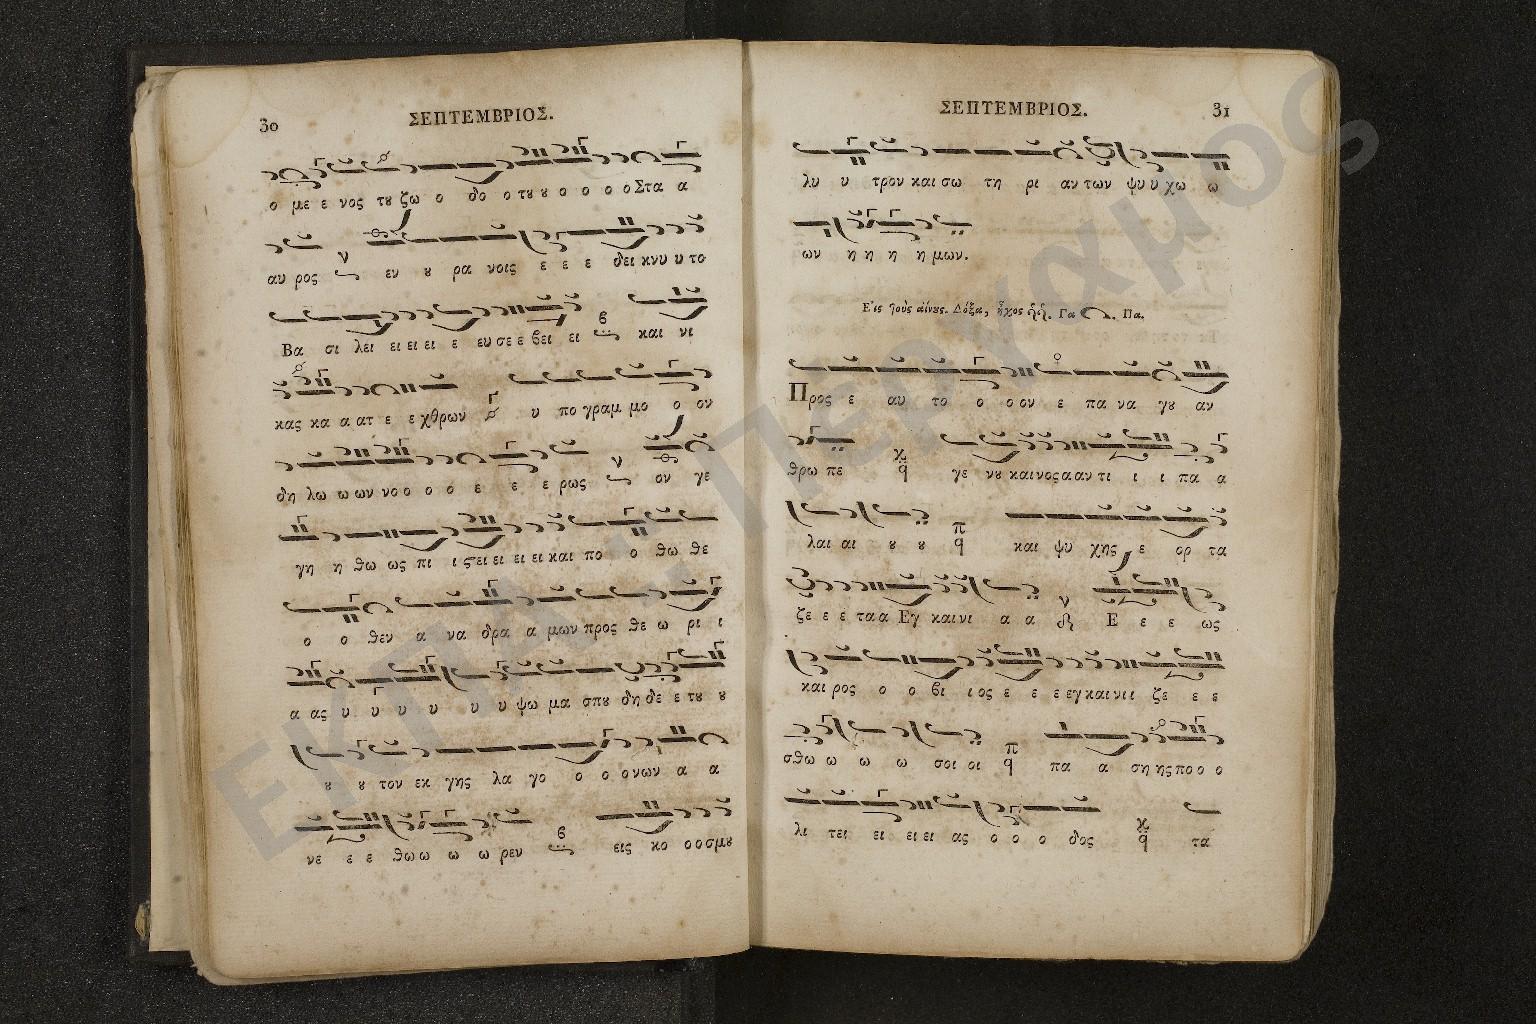 30
ΣΕΠΤΕΜΒΡΙΟΣ.
ο με ε νος τȣ ζω ο δο ο τȣ ȣ ο ο ο ο Στα α
αυ ρος εν ȣ ρα νοις ε ε ε δει κνυ υ το
Βα σι λει ει ει ει ε ευ σε ε βει ει και νι
κας κα α ατ ε ε χθρων υ πο γραμ μο ο ον
δη λω ω ων νο ο ο ο ε ε ε ρως ον γε
γη η θω ως πι ι ϛει ει ει ει ει και πο ο θω θε
ο ο θεν α να δρα α μων προς θε ω ρι ι
α ας υ υ υ υ υ υ ψω μα σπȣ δη δε ε τȣ ȣ
ȣ ȣ τον εκ γης λα γο ο ο ο νων α α
νε ε ε θω ω ω ω ρεν εις κο ο ο σμȣ
ΣΕΠΤΕΜΒΡΙΟΣ.
31
λυ υ τρον και σω τη ρι αν των ψυ υ χω ω
ων η η η η μων.
Εἰς τοὺς αἴνȣς. Δόξα, ἦχος Γα. Πα.
Προς ε αυ το ο ο ον ε πα να γȣ αν
θρω πε γε νȣ και νος α αν τι ι ι πα α
λαι αι ȣ ȣ και ψυ χης ε ορ τα
ζε ε ε τα α Εγ και νι α α Ε ε ε ως
και ρος ο ο βι ι ος ε ε ε εγ και νι ι ζε ε ε
σθω ω ω ω σοι οι πα α ση ης πο ο ο
λι τει ει ει ει ας ο ο ο δος τα
ΕΚΠΑ - Πέργαμος